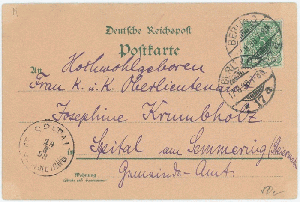 Deutsche Reichspost
Postkarte
An
Hochwohlgeboren
Frau K. u. K. Oberlieutenant
Josephine Krumbholz
Spital am Semmering
Gemeinde-Amt
Wohnung
SPITAL
BERLIN
17a